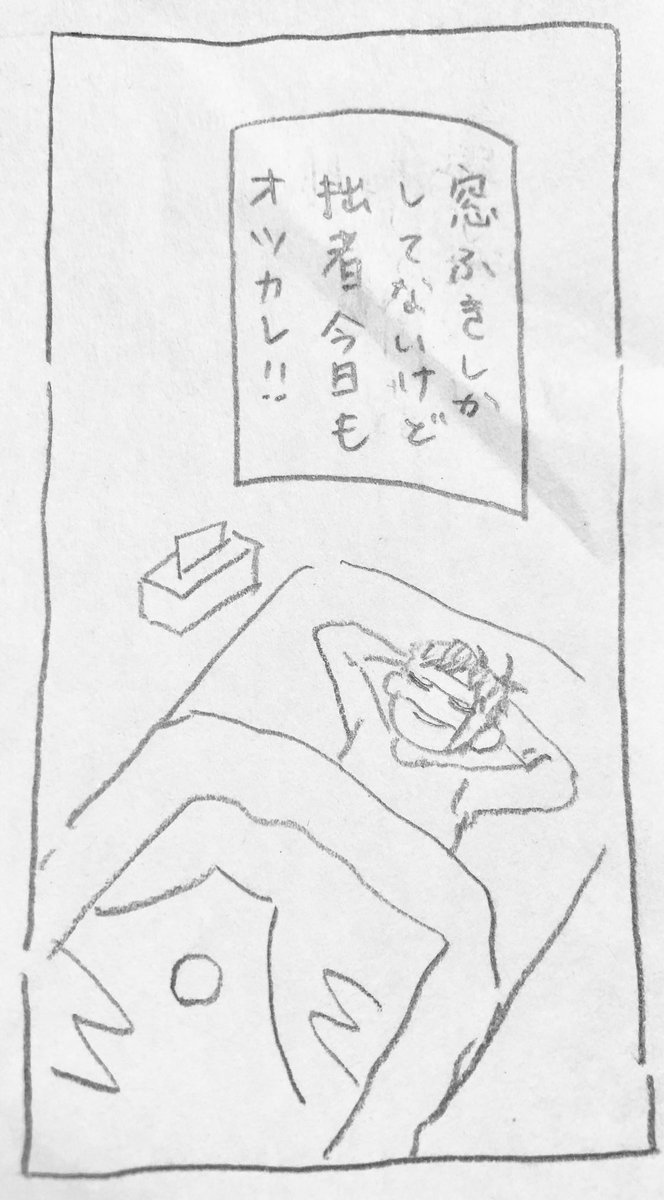 窓ふきしか
してないけど
拙者今日も
オツカレ!!